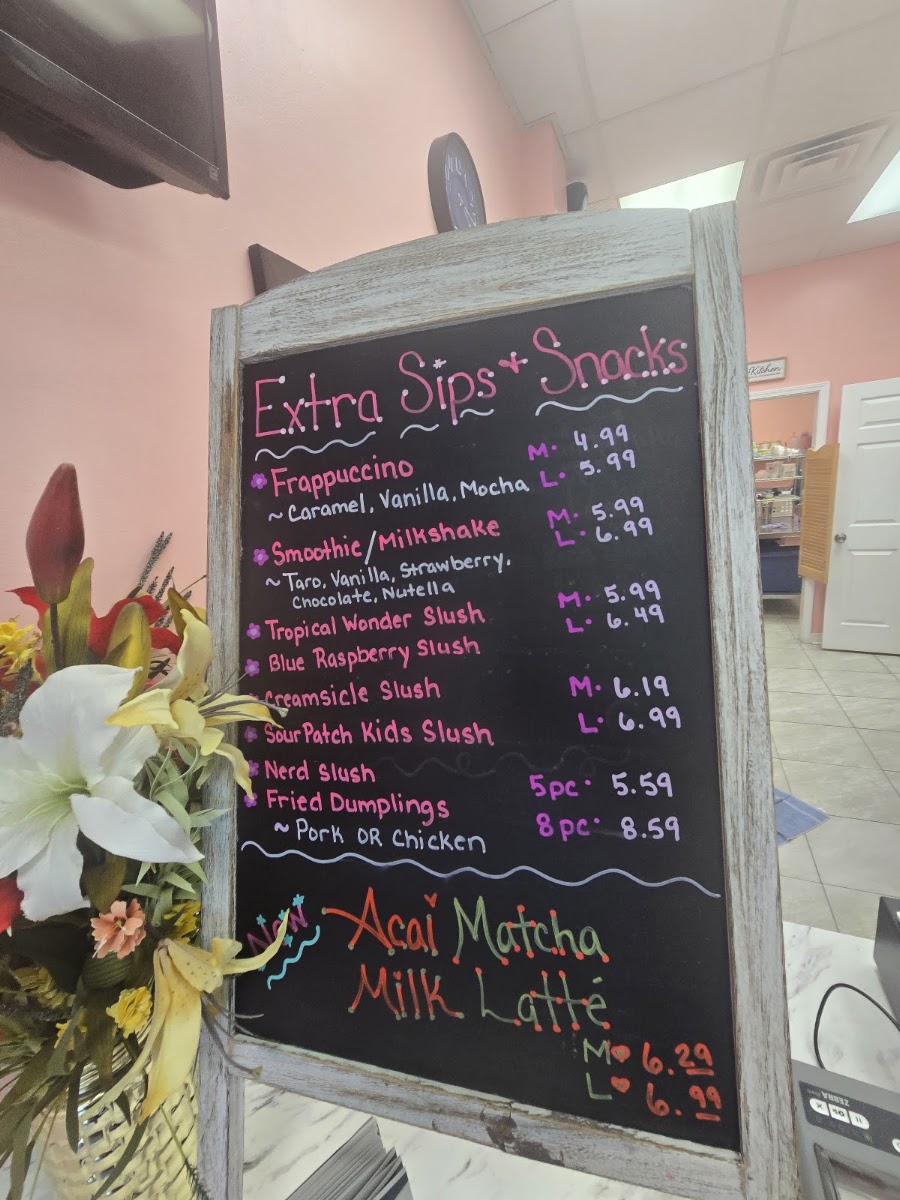 Extra Sips + Snacks
Frappuccino M· 4.99
L· 5.99
~ Caramel, Vanilla, Mocha
Smoothie/Milkshake M· 5.99
L· 6.99
~ Taro, Vanilla, Strawberry,
Chocolate, Nutella
Tropical Wonder Slush M· 5.99
L· 6.49
Blue Raspberry Slush
Creamsicle Slush M· 6.19
L· 6.99
Sour Patch Kids Slush
Nerd Slush
Fried Dumplings 5pc· 5.59
~ Pork OR Chicken 8pc· 8.59
New Acai Matcha
Milk Latté
M 6.29
L 6.99
Kitchen
ZEBRA